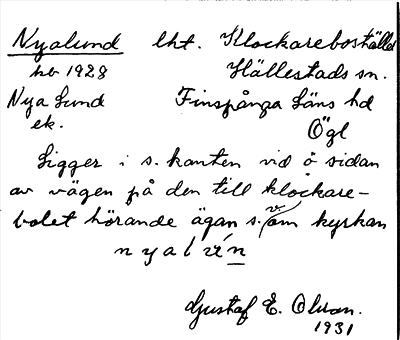 Nyalund lht. Klockareboställd
hb 1928 Hällestads sn.
Nya Lund Finspånga Läns hd
ek. Ögl
Ligger i s. kanten vid ö sidan
av vägen på den till klockare-
bolet hörande ägan s. v om kyrkan
nyalún
Gustaf E. Olsson.
1931